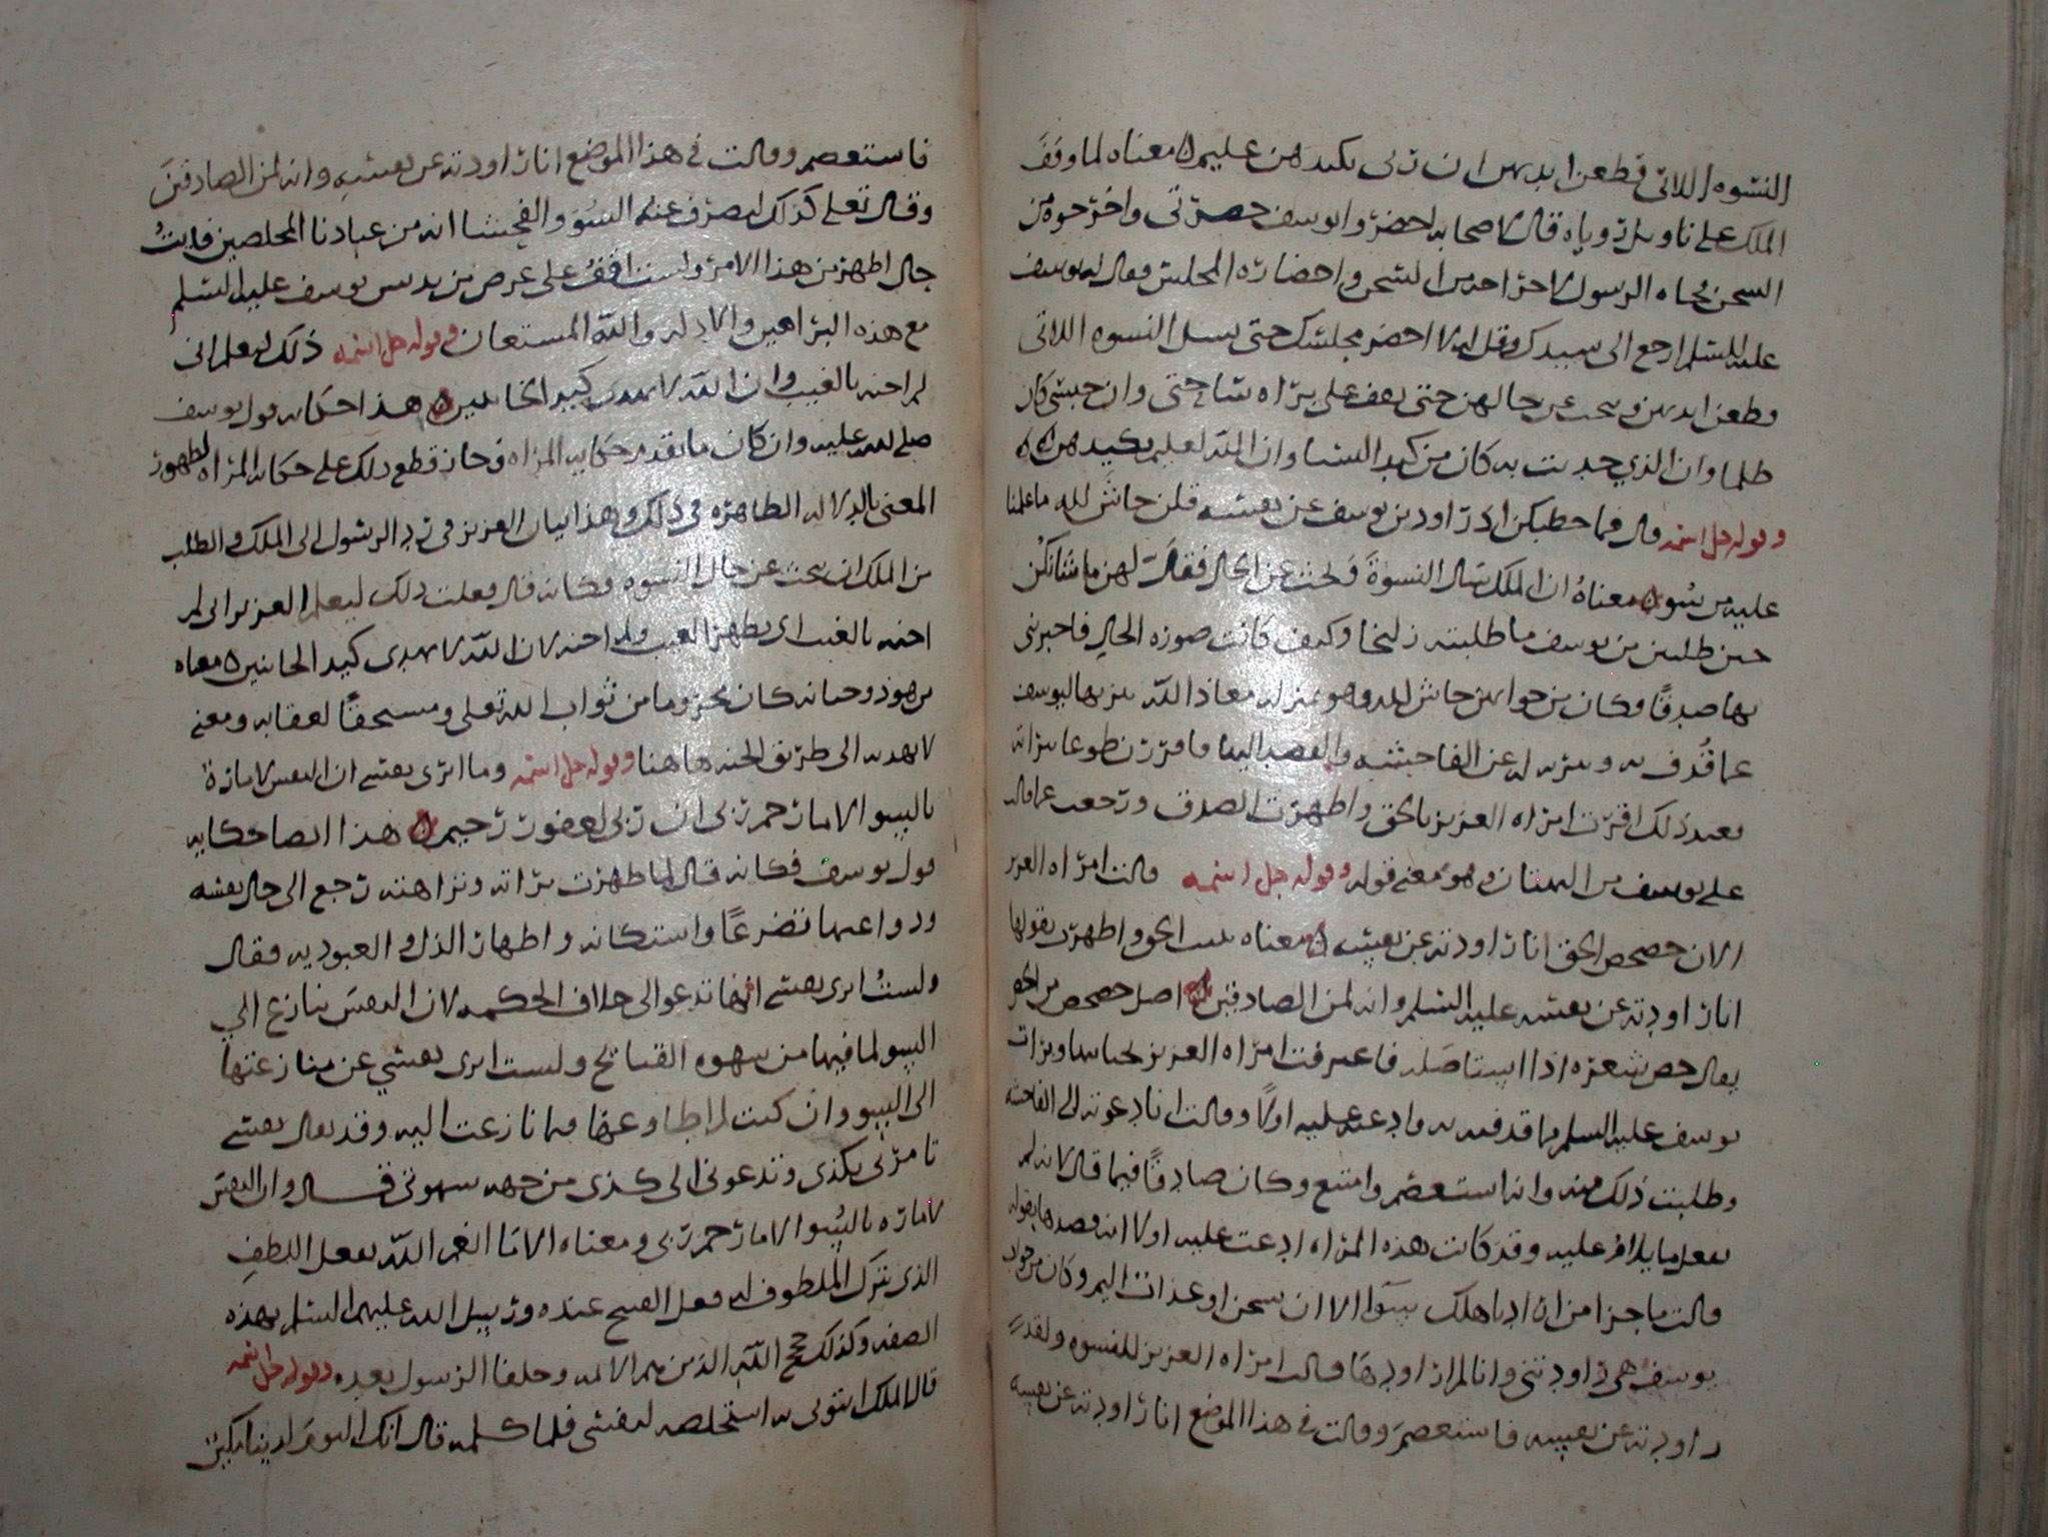 النسوه اللاتي قطعن ايديهن ان ربي بكيدهن عليم ه معناه لما وقف
الملك على تاويل روياه قال لاصحابه احضروا يوسف حضرتي واخرجوه من
السجن فجاه الرسول لاخراجه من السجن واحضاره المجلس فقال له يوسف
عليه السلم ارجع الى سيدك وقل له لا احضر مجلسك حتى يسل النسوه اللاتي
قطعن ايديهن وبحث عن حالهن حتى يقف على براه ساحتي وان حبسي كان
ظلما وان الذي حديت به كان من كيد النسا وان الله لعليم بكيدهن ه
وقوله جل اسمه قال فما خطبكن اذ راودتن يوسف عن نفسه قلن حاش لله ما علمنا
عليه من سو ه معناه ان الملك سال النسوة وبحث عن الحال فقال لهن ما شانكن
حين طلبتن من يوسف ما طلبته زليخا وكيف كانت صوره الحال فاخبرنني
بها صدقًا فكان من جوابهن حاش لله وهو بمنزله معاذ الله تنزيها ليوسف
عما قُذف به وتنزيه له عن الفاحشه والقصد اليها فاقررن تطوعا ببراته
فعند ذلك اقرت امراه العزيز بالحق واظهرت الصدق ورجعت عما قاله
على يوسف من البهتان وهو معنى قوله وقوله جل اسمه قالت امراه العزيز
الان حصحص الحق انا راودته عن نفسه ه معناه تبين الحق واظهرت بقولها
انا راودته عن نفسه عليه السلم وانه لمن الصادقين اصل حصحص من الحص
يقال حص شعره اذا استاصله فاعترفت امراه العزيز بخيانتها وبرات
يوسف عليه السلم مما قذفته به وادعته عليه اولًا وقالت انا دعوته الى الفاحشه
وطلبت ذلك منه وانه استعصم وامتنع وكان صادقًا فيما قال لانه لم
يفعل ما يلام عليه وقد كانت هذه المراه ادعت عليه اولا انه قصدها بقوله
قالت ما جزا من اراد باهلك سوا الا ان يسجن او عذاب اليم وكان من جواب
يوسف هي راودتني وانا لم اراودها وقالت امراه العزيز للنسوه ولقد
راودته عن نفسه فاستعصم وقالت في هذا الموضع انا راودته عن نفسه
فاستعصم وقالت في هذا الموضع انا راودته عن نفسه وانه لمن الصادقين
وقال تعلى كذلك لنصرف عنه السوَ والفحشا انه من عبادنا المخلصين فايتُ
حال اظهر من هذا الامر ولست اقف على غرض من يدنس يوسف عليه السلم
مع هذه البراهين والادله والله المستعان وقوله جل اسمه ذلك ليعلم اني
لم اخنه بالغيب وان الله لا يهدي كيد الخائنين ه هذا حكايه قول يوسف
صلى الله عليه وان كان ما تقدم حكايه المراه وجاز قطع ذلك على حكايه المراه لظهور
المعنى بالدلاله الظاهره في ذلك وهذا بيان العزيز في رد الرسول الى الملك والطلب
من الملك ان يبحث عن حال النسوه فكانه قال فعلت ذلك ليعلم العزيز اني لم
اخنه بالغيب اي بظهر الغيب ولم اخنه لان الله لا يهدي كيد الخائنين ه معناه
من هو ذو خيانه كان محروما من ثواب الله تعلى ومستحقًا لعقابه ومعنى
لا يهديه الى طريق الجنه هاهنا وقوله جل اسمه وما ابرى نفسي ان النفس لاماره
بالسو الا ما رحم ربي ان ربي لغفور رحيم ه هذا ايضا حكايه
قول يوسف فكانه قال لما ظهرت براته ونزاهته رجع الى حال نفسه
ودواعيها تضرعًا واستكانه واظهار الذل والعبوديه فقال
ولستُ ابرى نفسي انها تدعو الى خلاف الحكمه لان النفس تنازع الي
السو لما فيها من شهوه القبائح ولست ابرى نفسي عن منازعتها
الى السو وان كنت لم اطاوعها فيما نازعت اليه وقد يقال نفسي
تامرني بكذى وتدعوني الى كذى من جهه شهوتي قال وان النفس
لاماره بالسُو الا ما رحم ربي ومعناه الا ما انعم الله بفعل اللطف
الذي يترك الملطوف له فعل القبيح عنده ورسل الله عليهم السلم بهذه
الصفه وكذلك حجج الله الذين هم الايمه وخلفا الرسول بعده وقوله جل اسمه
قال الملك ايتوني به استخلصه لنفسي فلما كلمه قال انك اليوم لدينا مكين